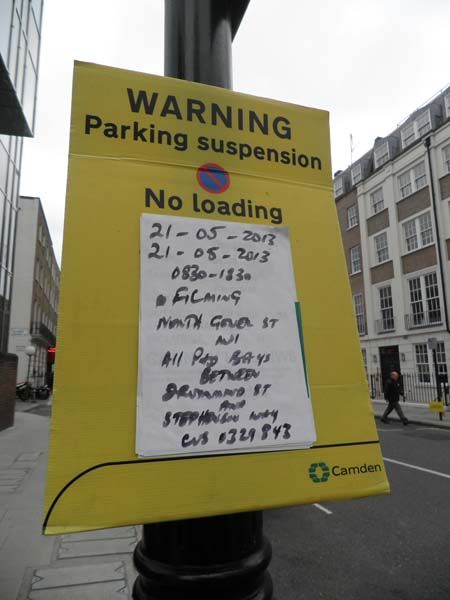 WARNING
Parking suspension
No loading
21-05-2013
21-05-2013
0830-1830
FILMING
NORTH GOWER ST
NW1
All P&D BAYS
BETWEEN
DRUMMOND ST
AND
STEPHENSON WAY
CUS 0329843
Camden